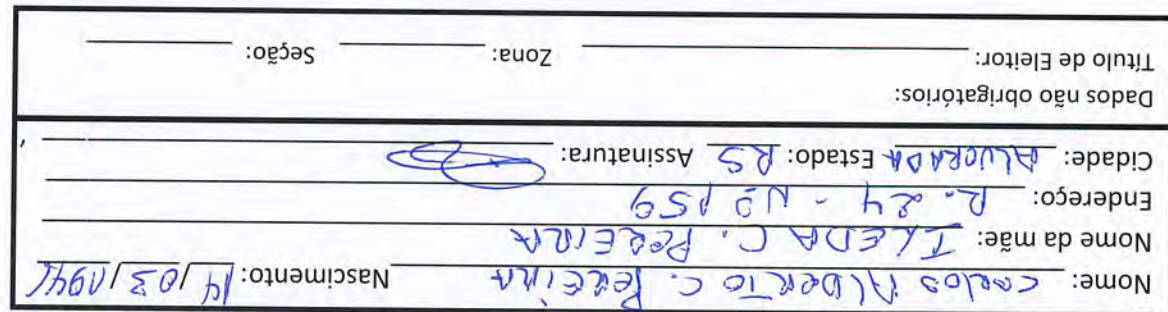 Nome: CARLOS ALBERTO C. PEREIRA Nascimento: 14/03/194
Nome da mãe: C. PEREIRA
Endereço: R. 24 - Nº 159
Cidade: ALVORADA Estado: RS Assinatura:
Dados não obrigatórios:
Título de Eleitor: Zona: Seção: